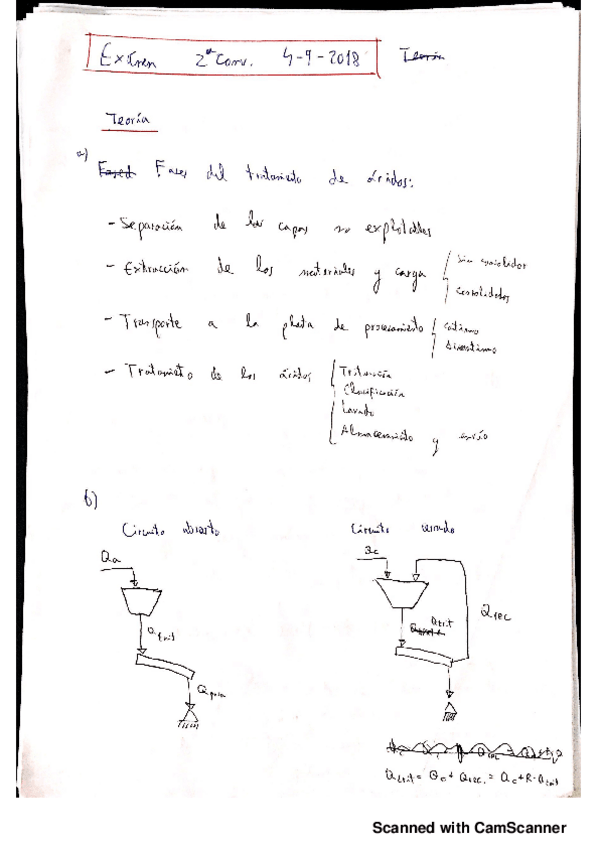 Examen 2ª Conv. 4-9-2018 Teoría
Teoría
a) Fased Fases del tratamiento de áridos:
- Separación de las capas no explotables
- Extracción de los materiales y carga
Sin consolidar
Consolidados
- Transporte a la planta de procesamiento
Continuo
Discontinuo
- Tratamiento de los áridos
Trituración
Clasificación
Lavado
Almacenamiento y envío
b)
Circuito abierto
Circuito cerrado
Qa
Qc
Qtrit
Qtrit
Qrec
Qpasa
Qtrit = Qc + Qrec. = Qc + R · Qtrit
Scanned with CamScanner